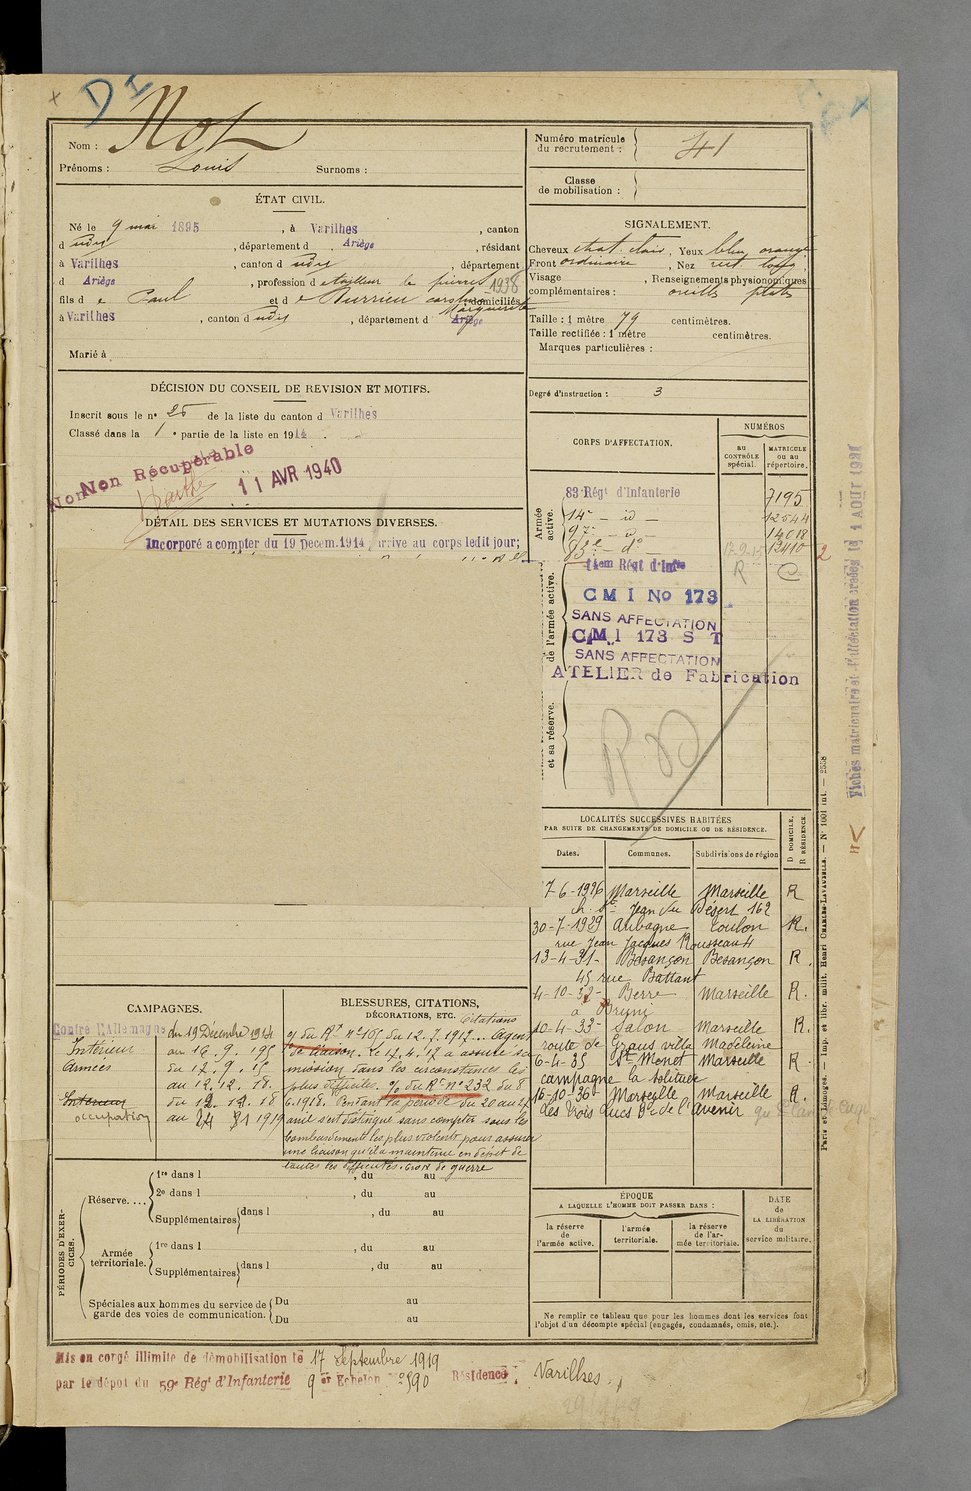 D I
Nom : Not
Prénoms : Louis Surnoms :
Numéro matricule du recrutement : 41
Classe de mobilisation :
ÉTAT CIVIL.
Né le 9 mai 1895, à Varilhes, canton
d udy, département d Ariège, résidant
à Varilhes, canton d udy, département
d Ariège, profession de tailleur de pierres 1938
fils de Paul et de Durrieu Marguerite domiciliés
à Varilhes, canton d udy, département d Ariège
Marié à
SIGNALEMENT.
Cheveux chat. clair, Yeux bleu orangé
Front ordinaire, Nez rect. long.
Visage , Renseignements physionomiques
complémentaires : oreilles plates
Taille : 1 mètre 79 centimètres.
Taille rectifiée : 1 mètre centimètres.
Marques particulières :
Degré d'instruction : 3
DÉCISION DU CONSEIL DE REVISION ET MOTIFS.
Inscrit sous le n° 25 de la liste du canton d Varilhes
Classé dans la 1e partie de la liste en 1914.
Non Récupérable
11 AVR 1940
DÉTAIL DES SERVICES ET MUTATIONS DIVERSES.
Incorporé a compter du 19 Decem. 1914, arrive au corps ledit jour;
CORPS D'AFFECTATION.
NUMÉROS
au CONTRÔLE spécial.
MATRICULE ou au répertoire.
Armée active.
83 Régt d'Infanterie 7195
14e - id - 12544
97e - do - 14018
83e - do - 12410 2
14em Régt d'Infie R
de l'armée active.
CMI No 173
SANS AFFECTATION
CMI 173 ST
SANS AFFECTATION
ATELIER de Fabrication
et sa réserve.
LOCALITÉS SUCCESSIVES HABITÉES
PAR SUITE DE CHANGEMENTS DE DOMICILE OU DE RÉSIDENCE.
Dates. Communes. Subdivisions de région D DOMICILE. R RÉSIDENCE.
7-6-1926 Marseille Marseille R
ch. St Jean du Désert 162
30-7-1929 Aubagne Toulon R.
rue Jean Jacques Rousseau 4
13-4-31- Besançon Besançon R.
45 rue Battant
4-10-32- Berre Marseille R.
à Bruni
10-4-33- Salon Marseille R.
route de Grans villa Madeleine
6-4-35 St Monet Marseille R
campagne la solitude
16-10-36 Marseille Marseille R.
des trois Lucs Bd de l'avenir
CAMPAGNES.
Contre l'Allemagne du 19 Décembre 1914
Intérieur au 16. 9. 195
Armées du 17. 9. 15
au 12. 12. 18.
Interieur du 12. 12. 18
occupation au 24 81919
BLESSURES, CITATIONS, DÉCORATIONS, ETC.
Citations
O/ du Rt n° 165 du 12.7.1917... Agent
de liaison. Le 17.4.17 a assuré sa
mission dans les circonstances les
plus difficiles. O/ du Rt n° 232 du 8
6.1918. Pendant la période du 20 au 27
avril s'est distingué sans compter sous les
bombardements les plus violents pour assurer
une liaison qu'il a maintenue en dépit de
toutes les difficultés. Croix de guerre
PÉRIODES D'EXERCICES.
Réserve.... 1re dans l , du au
2e dans l , du au
Supplémentaires dans l , du au
Armée territoriale. 1re dans l , du au
Supplémentaires dans l , du au
Spéciales aux hommes du service de garde des voies de communication. Du au
Du au
ÉPOQUE
A LAQUELLE L'HOMME DOIT PASSER DANS :
la réserve de l'armée active.
l'armée territoriale.
la réserve de l'armée territoriale.
DATE de LA LIBÉRATION du service militaire.
Ne remplir ce tableau que pour les hommes dont les services font
l'objet d'un décompte spécial (engagés, condamnés, omis, etc.).
Mis en congé illimité de démobilisation le 17 Septembre 1919
par le dépôt du 59e Régt d'Infanterie 9er Echelon n° 590 Résidence : Varilhes
Paris et Limoges. — Imp. et libr. milit. Henri CHARLES-LAVAUZELLE. — N° 1001 int. — 2538